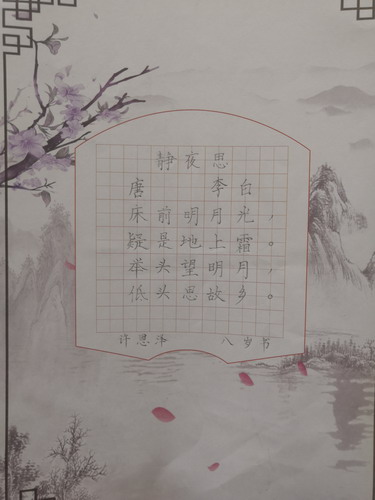 静夜思
唐 李白
床前明月光，
疑是地上霜。
举头望明月，
低头思故乡。
许思 八岁书